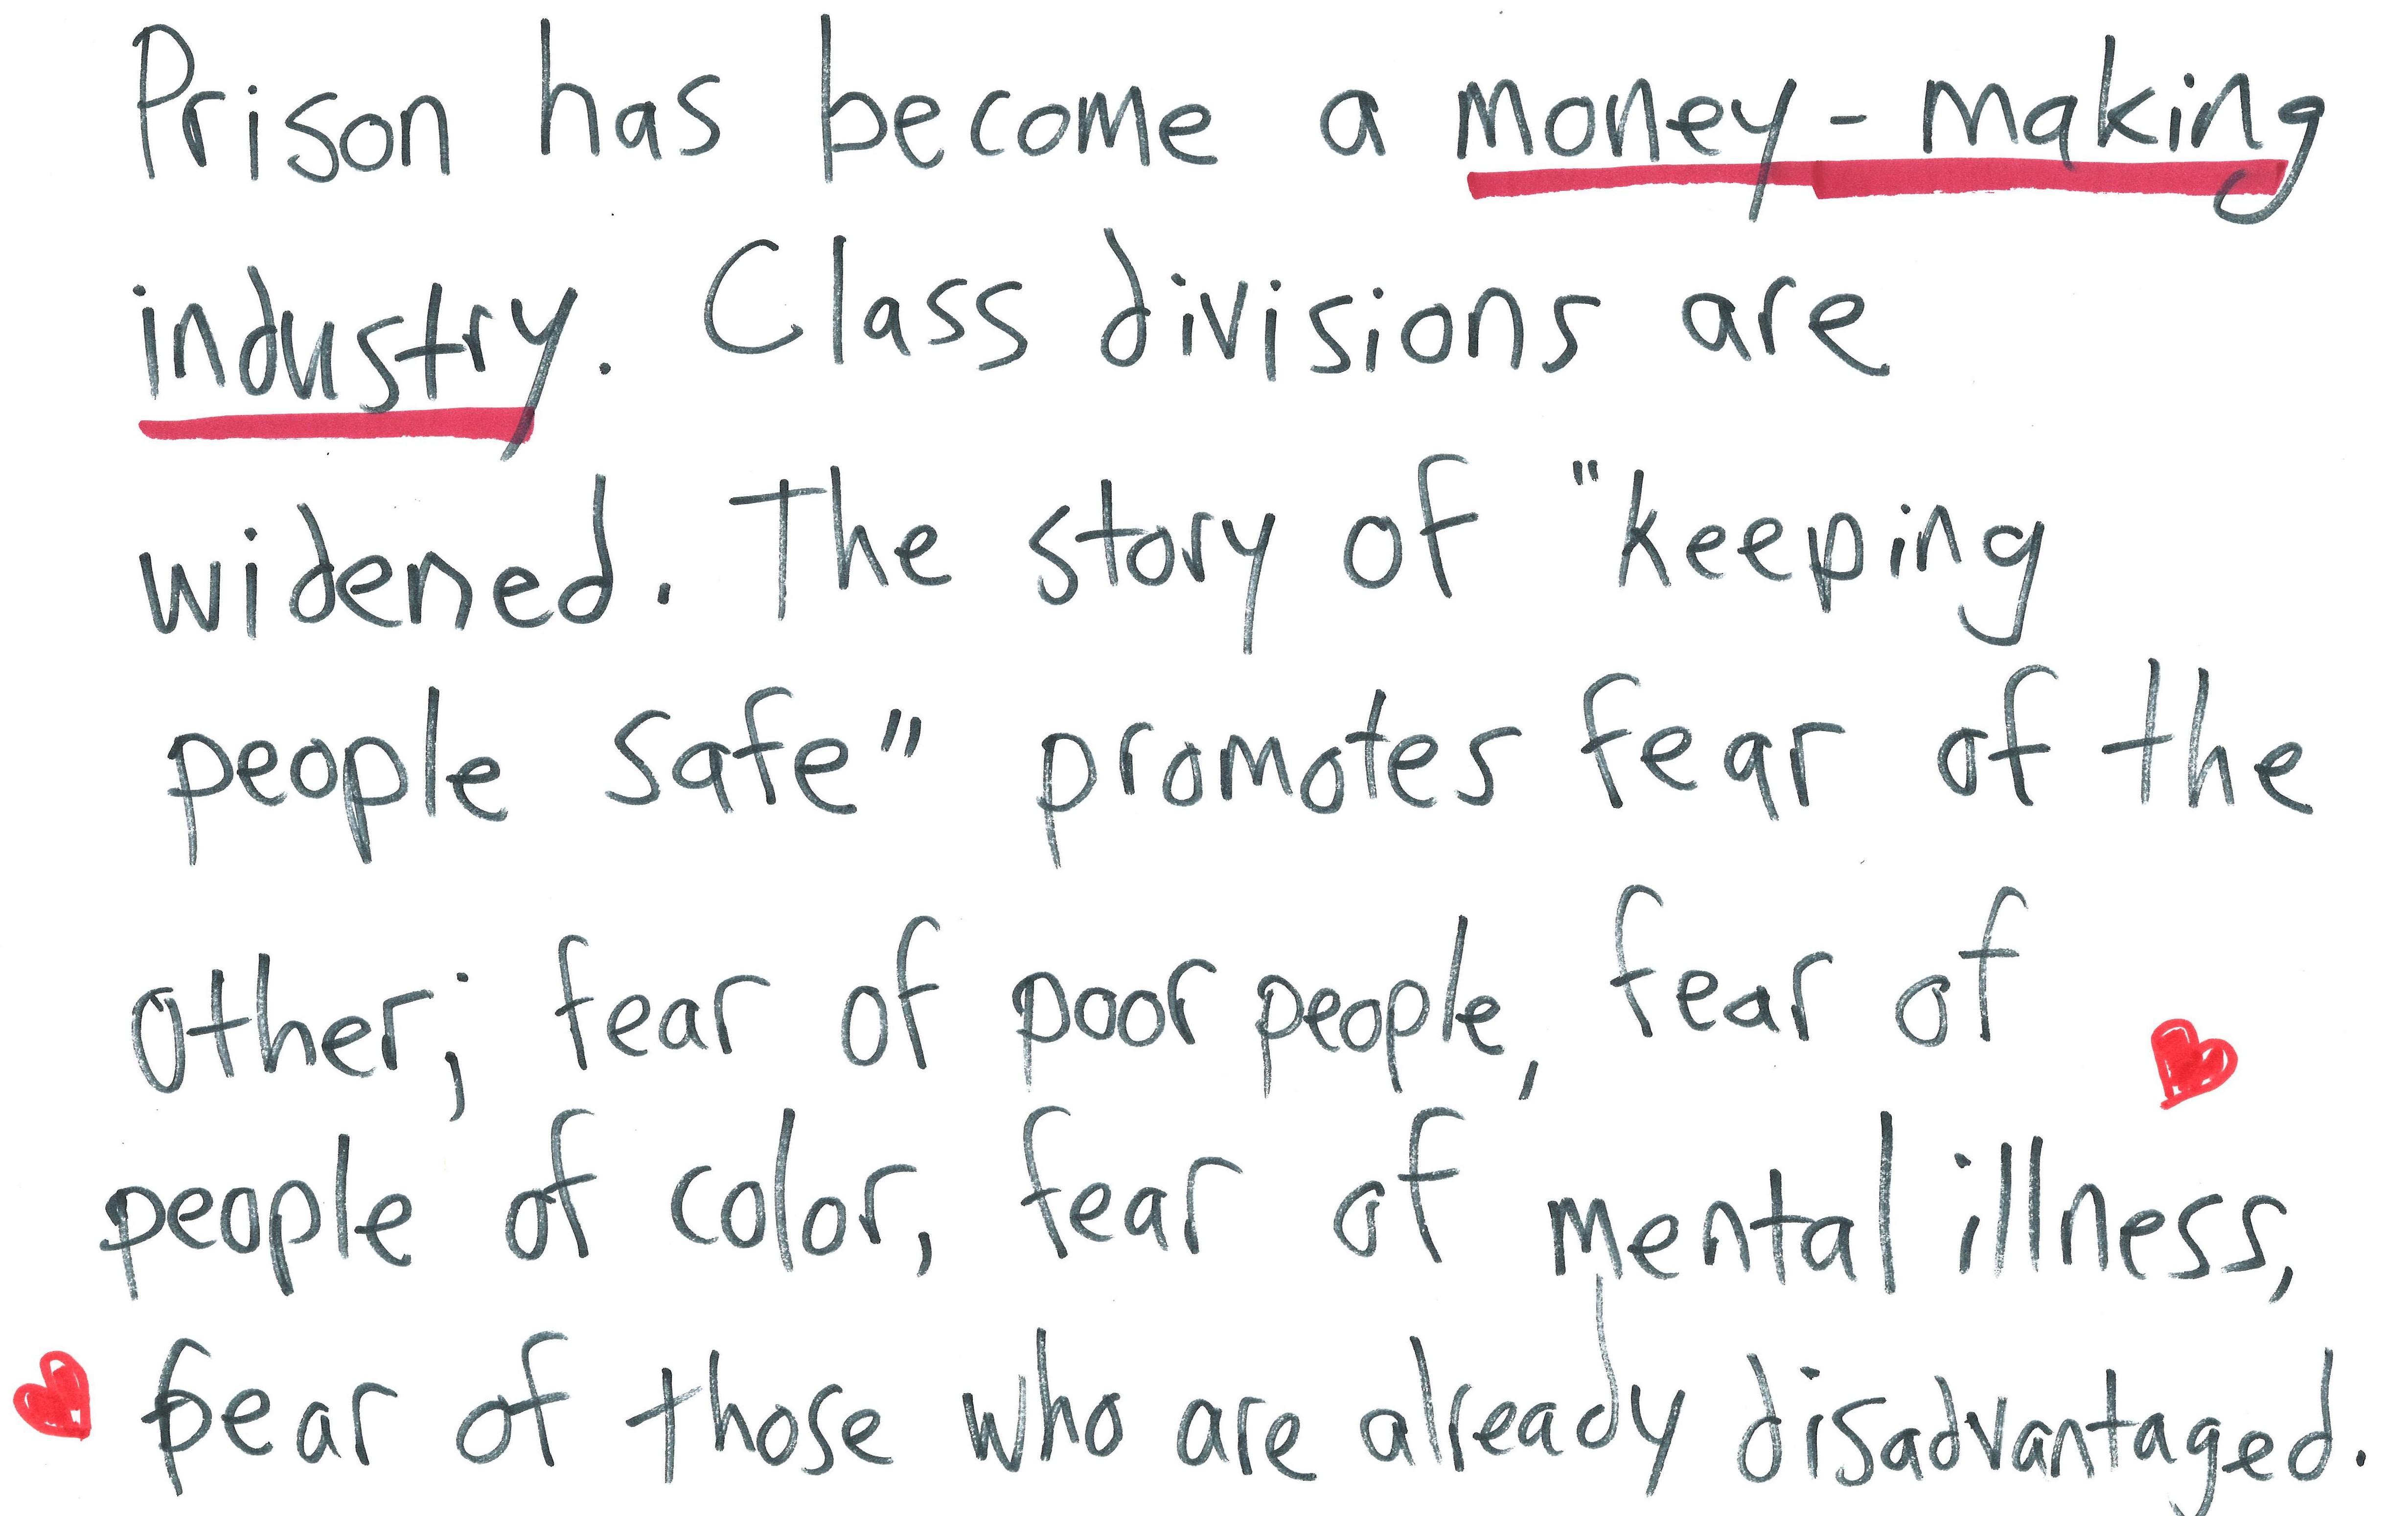 Prison has become a money-making
industry. Class divisions are
widened. The story of "keeping
people safe" promotes fear of the
other; fear of poor people, fear of
people of color, fear of mental illness,
fear of those who are already disadvantaged.